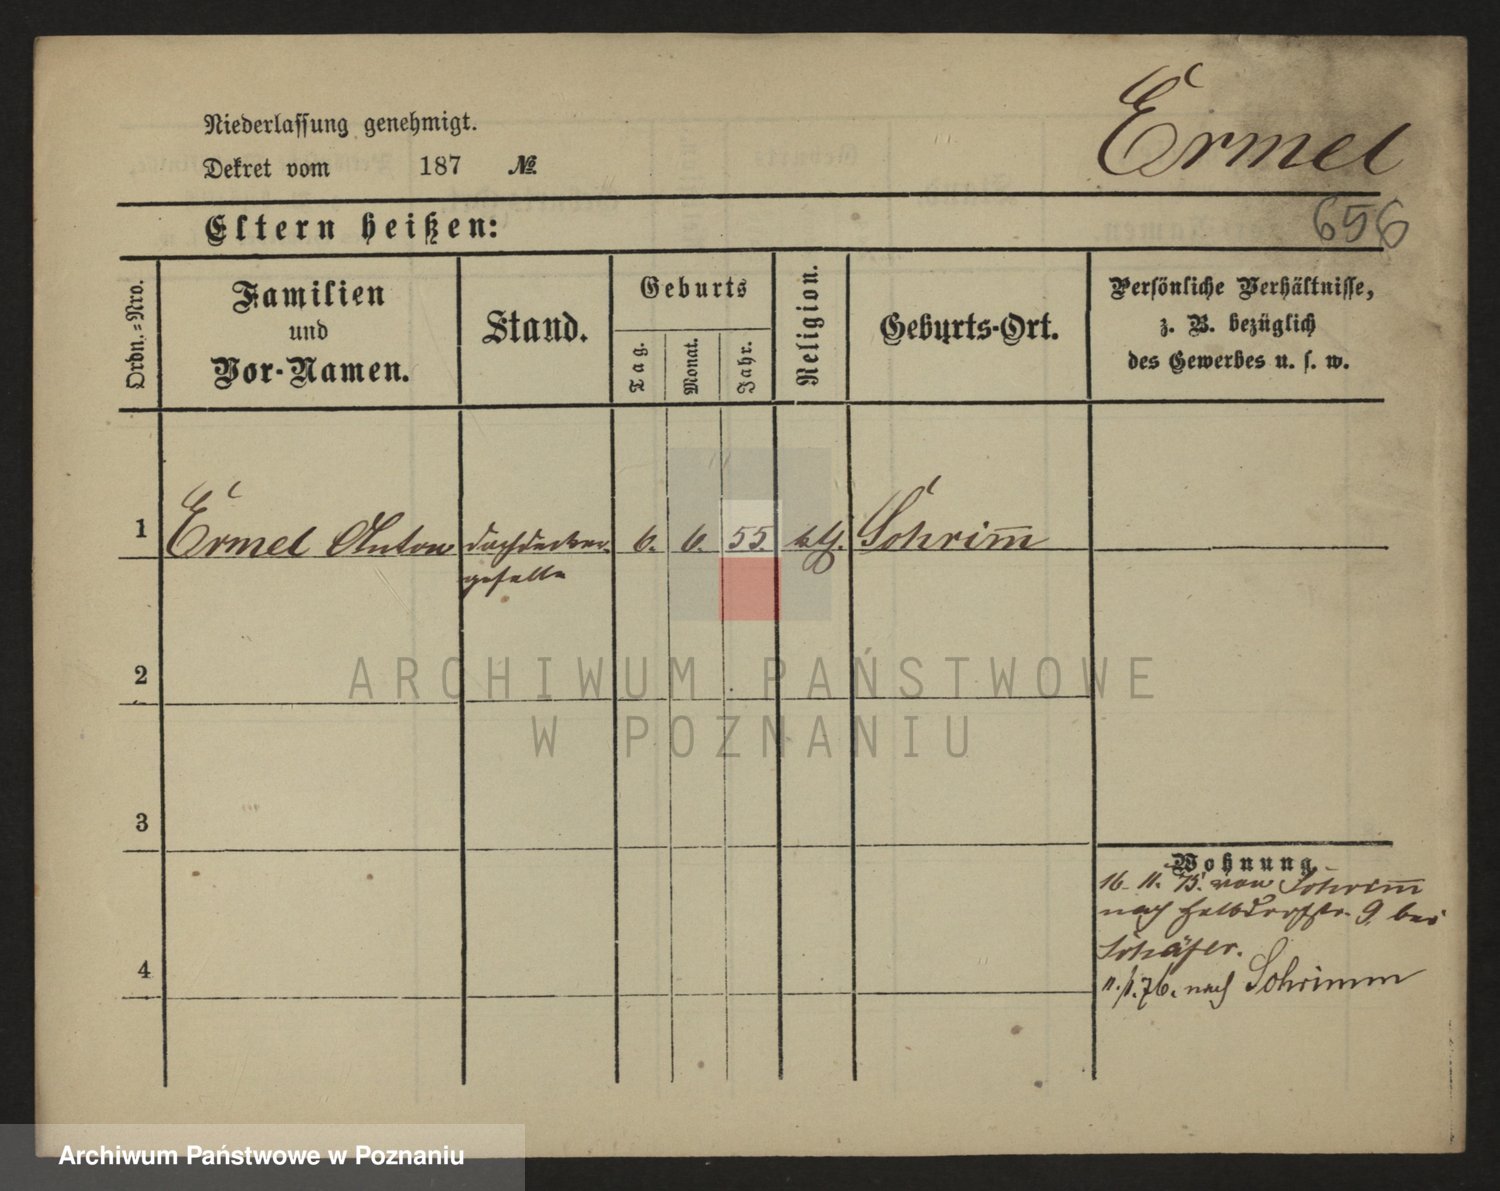 Ermel
Niederlassung genehmigt.
Dekret vom 187 №
656
Eltern heißen:
Ordn.=Nro.
Familien
und
Vor-Namen.
Stand.
Geburts
Tag.
Monat.
Jahr.
Religion.
Geburts-Ort.
Persönliche Verhältnisse,
z. B. bezüglich
des Gewerbes u. s. w.
1 Ermel Anton dachdecker- 6. 6. 55. kth. Schrim̅
geselle
2
3
4
Wohnung
16. 11. 75. von Schrim̅
nach Halbdorfstr. 9 bei
Schäfer.
11./1. 76. nach Schrimm
ARCHIWUM PAŃSTWOWE
W POZNANIU
Archiwum Państwowe w Poznaniu